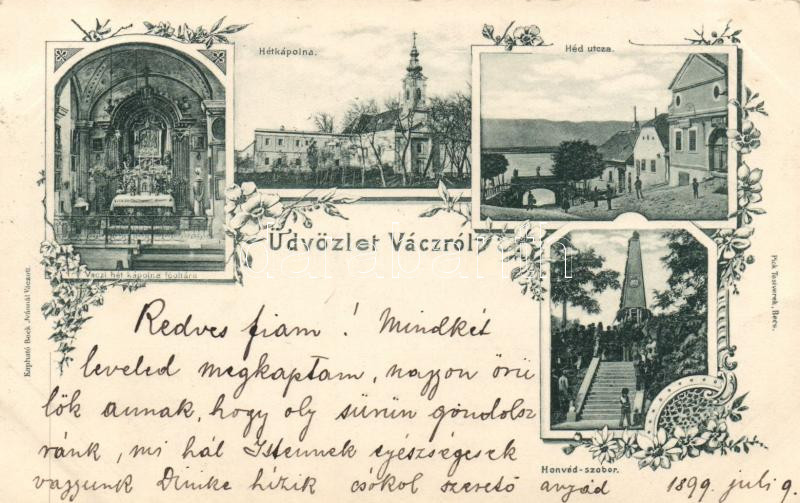 Hétkápolna.
Héd utcza.
Váczi hét kápolna főoltára
Üdvözlet Váczról!
Kapható Beck Ármnál Váczott.
Honvéd-szobor.
Kedves fiam! Mindkét
leveled megkaptam, nagyon örü
lök annak, hogy oly sürün gondolsz
ránk, mi hál Istennek egészségesek
vagyunk hízik csókol szerető anyád 1899 juli 9.